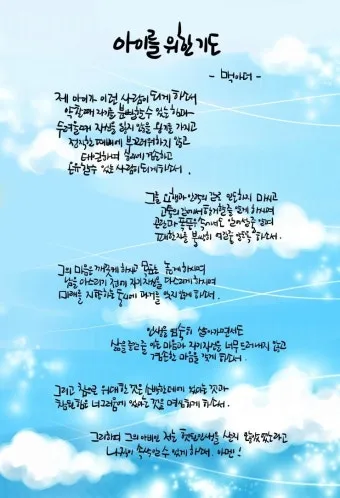 아이를 위한 기도
- 맥아더 -
제 아이가 이런 사람이 되게 하소서
약할때 자기를 분별할수 있는 힘과
두려울때 자신을 잃지 않을 용기를 가지고
정직한 패배에 부끄러워하지 않고
태연하며 승리에 겸손하고
온유할수 있는 사람이 되게하소서.
그를 요행과 안락의 길로 인도하지 마시고
고통의 길에서 항거할줄 알게 하시며
곤란과 폭풍속에서도 일어설줄 알며
패한자를 불쌍히 여길줄 알도록 하소서.
그의 마음을 깨끗케 하시고 목표는 높게 하시며
남을 다스리기 전에 자기자신을 다스리게 하시며
미래를 지향하는 동시에 과거를 잊지 않게 하소서.
인생을 엄숙히 살아가면서도
삶을 즐길줄 아는 마음과 자기자신을 너무 드러내지 않고
겸손한 마음을 갖게 하소서.
그리고 참으로 위대한 것은 소박한데에 있다는 것과
참된 힘은 너그러움에 있다는 것을 명심하게 하소서.
그리하여 그의 아버지인 저는 헛된인생을 살지 않았노라고
나직이 속삭일수 있게 하소서. 아멘!